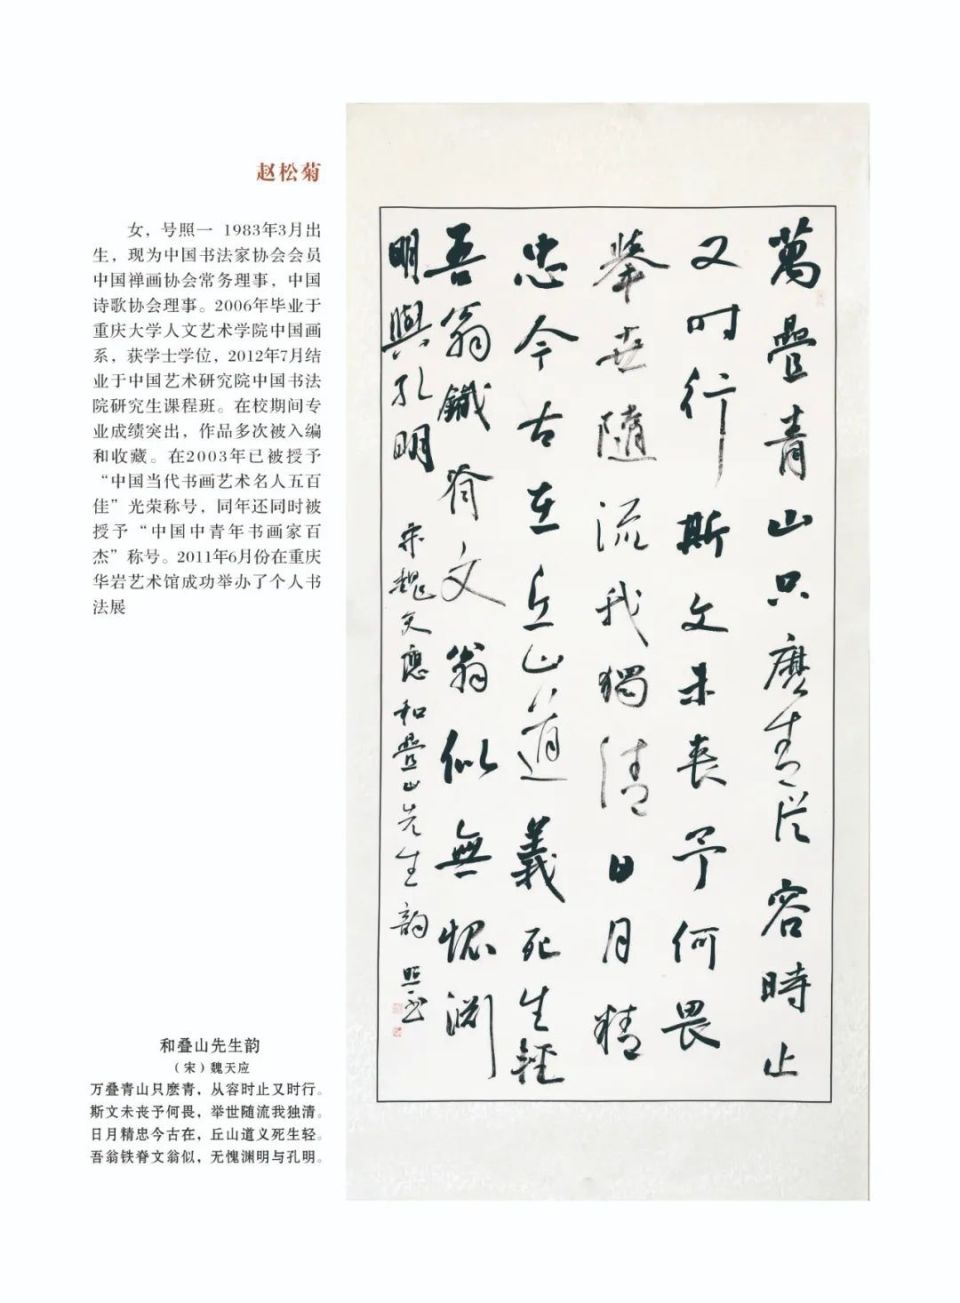 赵松菊
女，号照一 1983年3月出
生，现为中国书法家协会会员
中国禅画协会常务理事，中国
诗歌协会理事。2006年毕业于
重庆大学人文艺术学院中国画
系，获学士学位，2012年7月结
业于中国艺术研究院中国书法
院研究生课程班。在校期间专
业成绩突出，作品多次被入编
和收藏。在2003年已被授予
“中国当代书画艺术名人五百
佳”光荣称号，同年还同时被
授予“中国中青年书画家百
杰”称号。2011年6月份在重庆
华岩艺术馆成功举办了个人书
法展
萬疊青山只麽青從容時止
又时行斯文未喪予何畏
舉世隨流我獨清日月精
忠今古在丘山道義死生輕
吾翁鐵脊文翁似無愧淵
明與孔明 宋魏天應和疊山先生韵 照一書
和叠山先生韵
（宋）魏天应
万叠青山只麽青，从容时止又时行。
斯文未丧予何畏，举世随流我独清。
日月精忠今古在，丘山道义死生轻。
吾翁铁脊文翁似，无愧渊明与孔明。